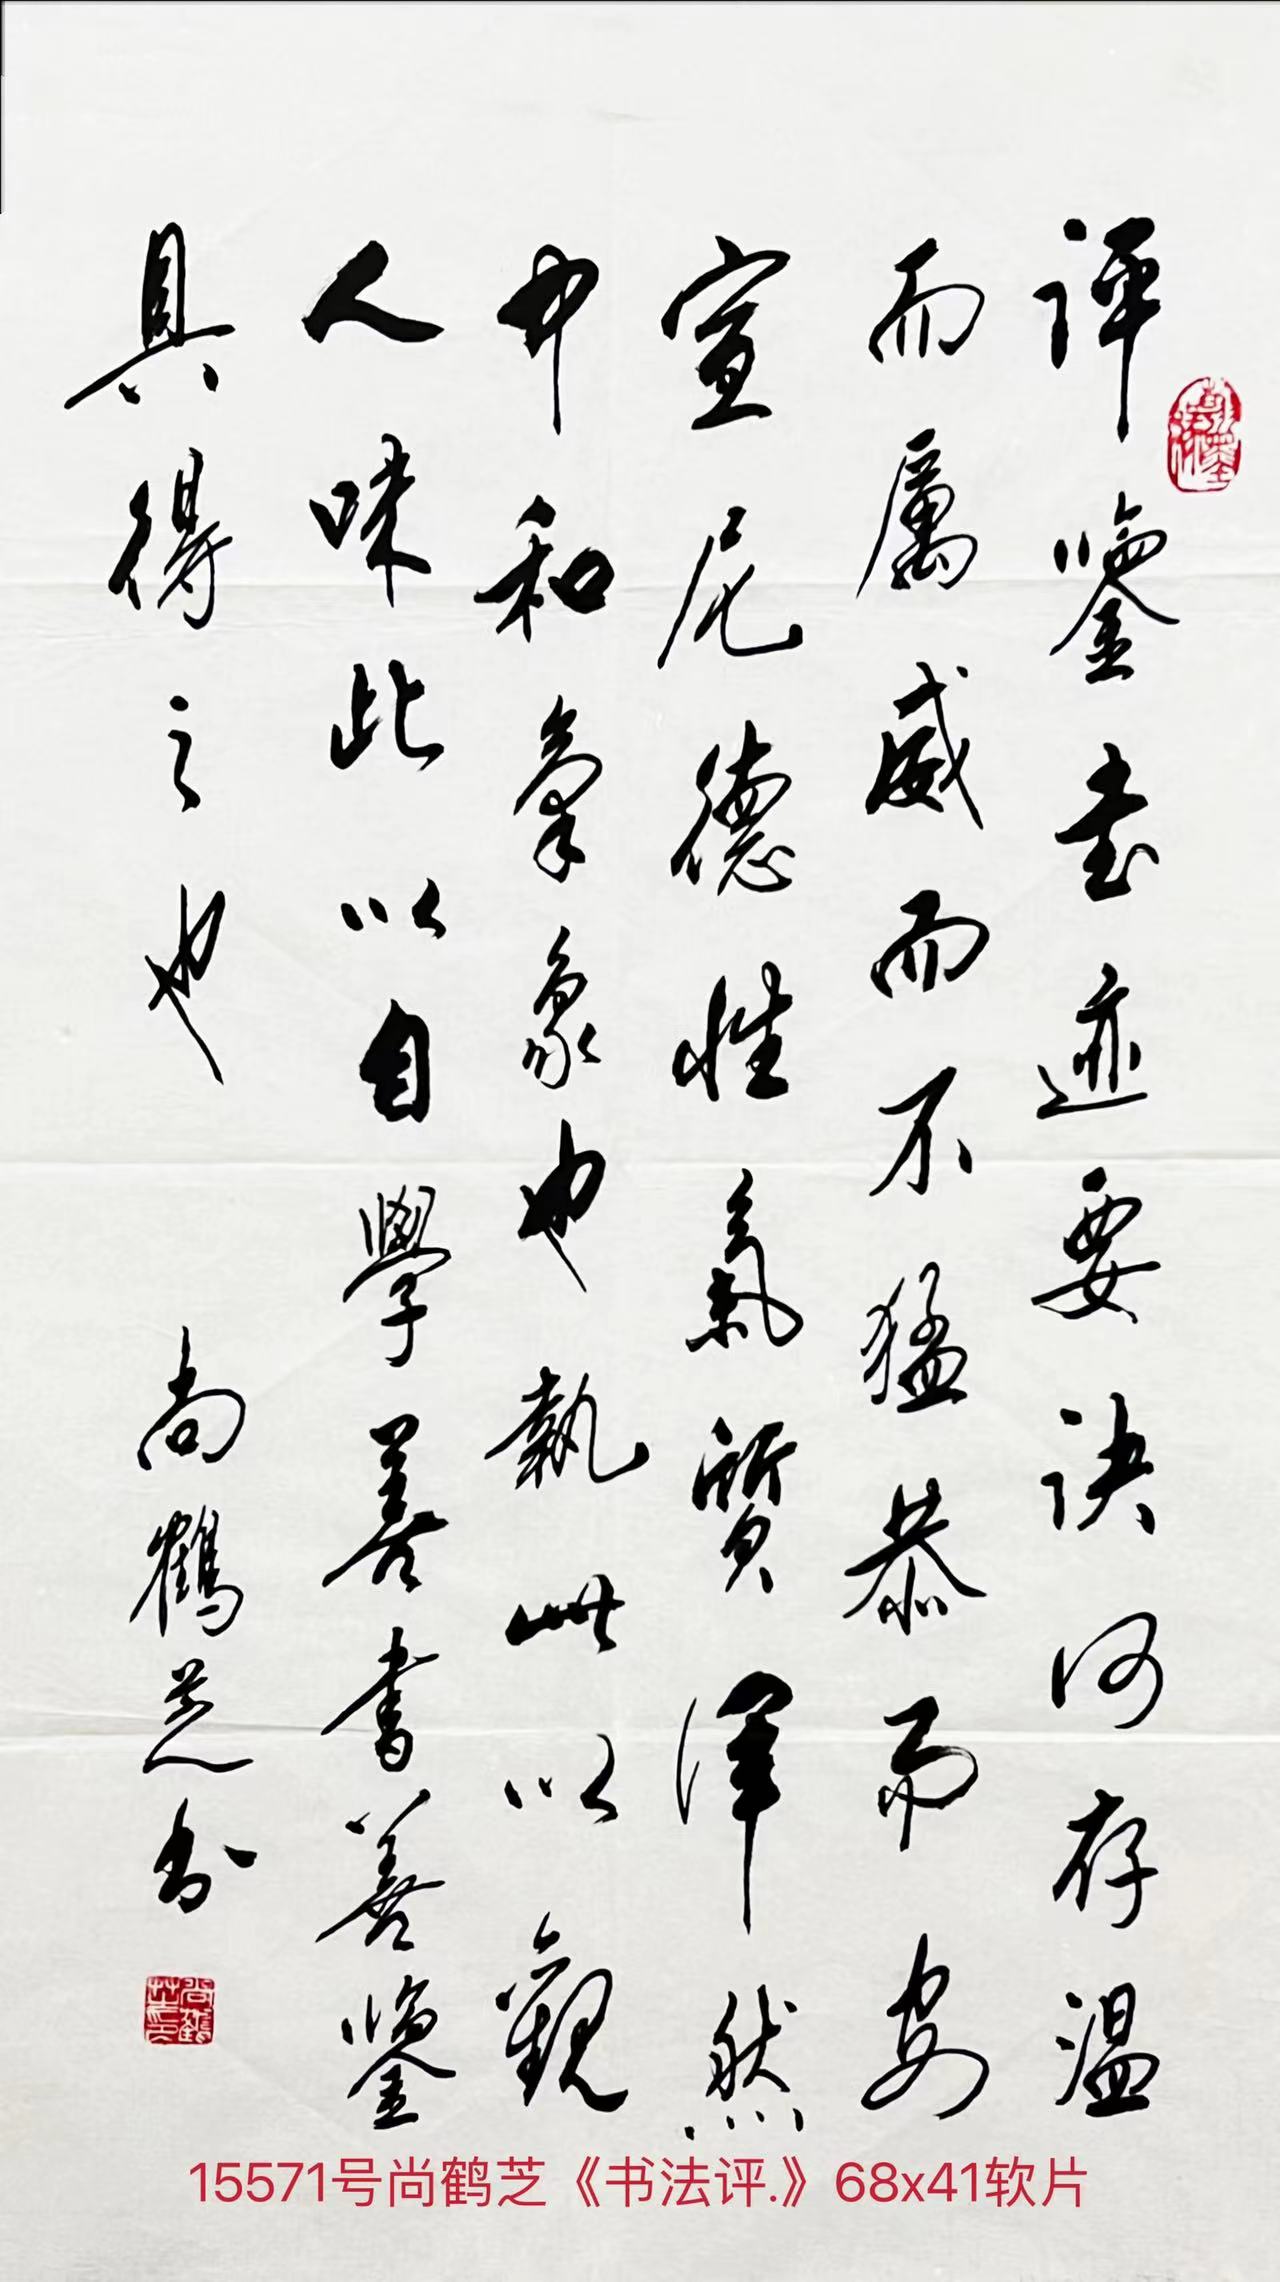 评鉴書迹要诀何存温
而厲威而不猛恭而安
宣尼德性氣質浑然
中和氣象也執此以觀
人味此以自學善書善鑒
具得之也
尚鶴芝书
尚鶴芝印
15571号尚鹤芝《书法评.》68x41软片